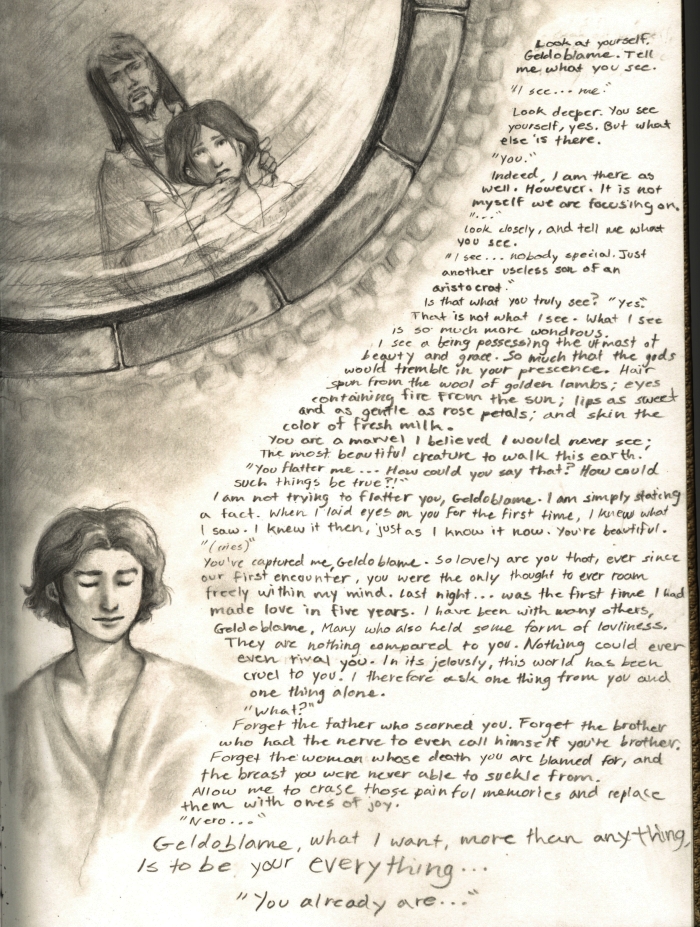 Look at yourself.
Geldoblame. Tell
me what you see.
"I see... me."
Look deeper. You see
yourself, yes. But what
else is there.
"You."
Indeed, I am there as
well. However. It is not
myself we are focusing on.
"..."
Look closely, and tell me what
you see.
"I see... nobody special. Just
another useless son of an
aristocrat."
Is that what you truly see? "Yes."
That is not what I see. What I see
is so much more wondrous.
I see a being possessing the utmost of
beauty and grace. So much that the gods
would tremble in your prescence. Hair
spun from the wool of golden lambs; eyes
containing fire from the sun; lips as sweet
and as gentle as rose petals; and skin the
color of fresh milk.
You are a marvel I believed I would never see;
The most beautiful creature to walk this earth.
"You flatter me... How could you say that? How could
such things be true?!"
I am not trying to flatter you, Geldoblame. I am simply stating
a fact. When I laid eyes on you for the first time, I knew what
I saw. I knew it then, just as I know it now. You're beautiful.
"(cries)"
You've captured me, Geldoblame. So lovely are you that, ever since
our first encounter, you were the only thought to ever roam
freely within my mind. Last night... was the first time I had
made love in five years. I have been with many others,
Geldoblame, Many who also held some form of lovliness.
They are nothing compared to you. Nothing could ever
even rival you. In its jelously, this world has been
cruel to you. I therefore ask one thing from you and
one thing alone.
"What?"
Forget the father who scorned you. Forget the brother
who had the nerve to even call himself you're brother.
Forget the woman whose death you are blamed for, and
the breast you were never able to suckle from.
Allow me to erase those painful memories and replace
them with ones of joy.
"Nero..."
Geldoblame, what I want, more than anything,
Is to be your everything...
"You already are..."